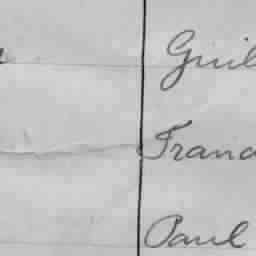 Guil
Franc
Paul